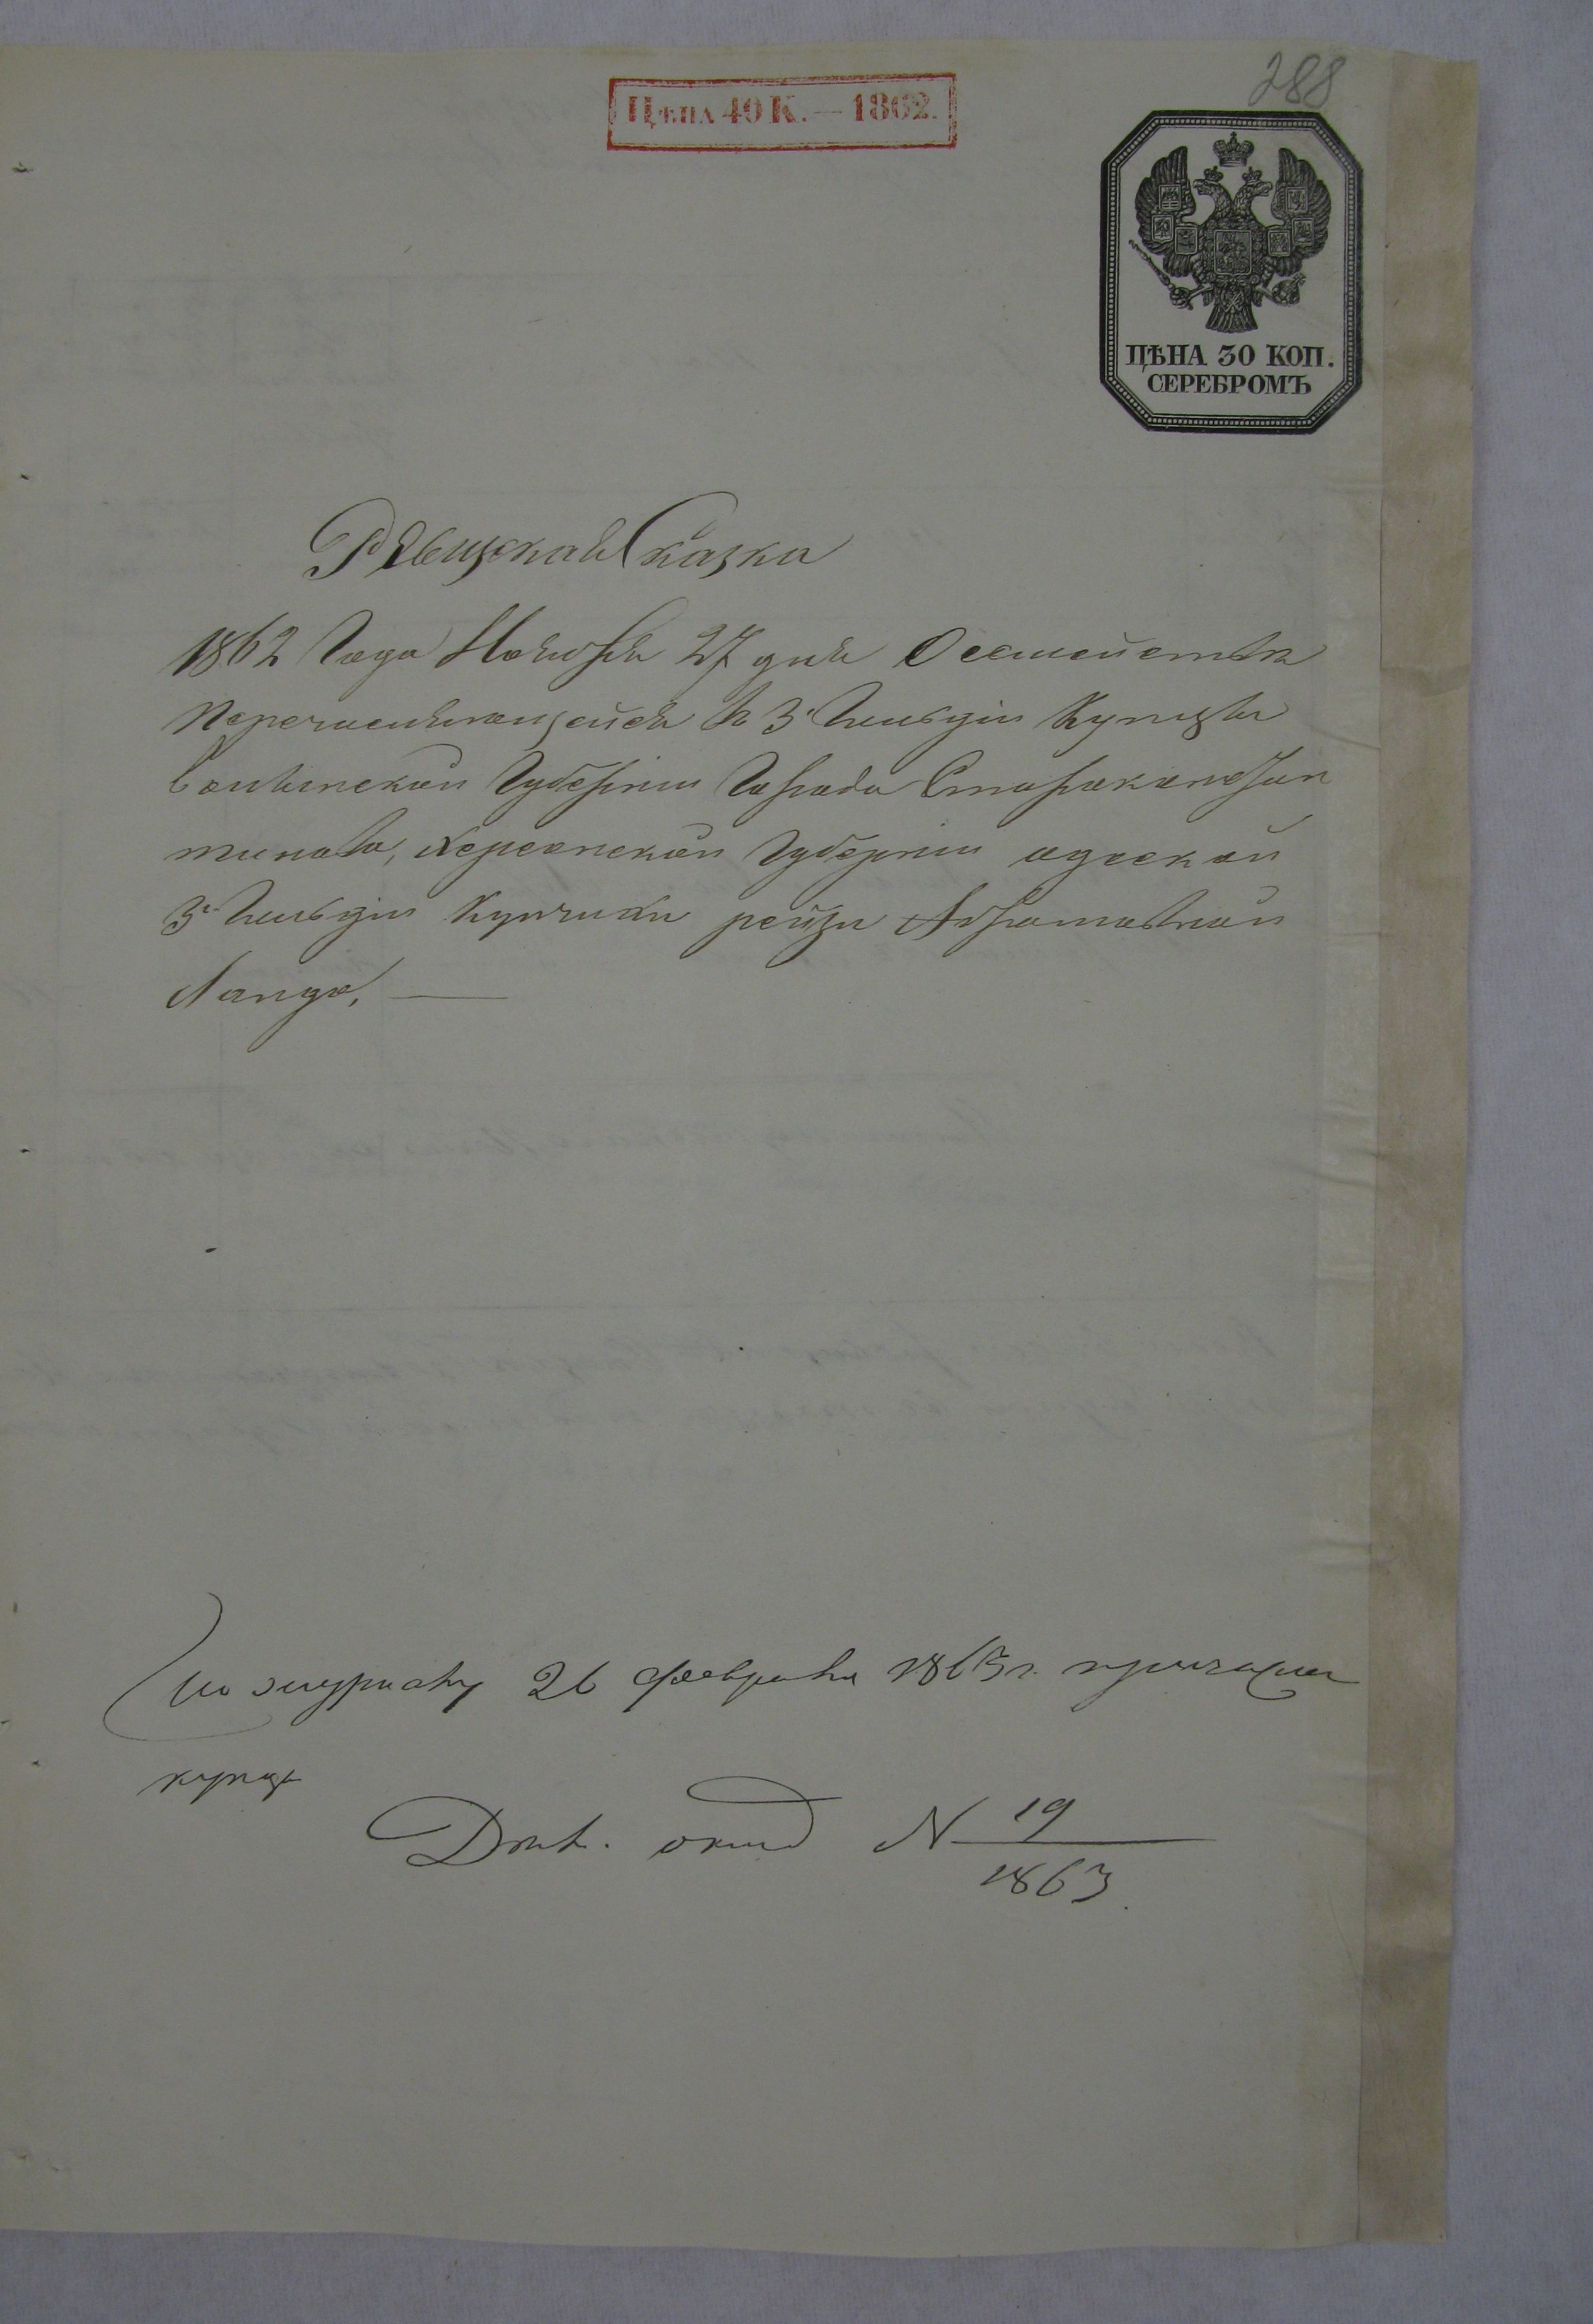 288
Цѣна 40 К. — 1862.
ЦѢНА 30 КОП.
СЕРЕБРОМЪ
Рѣвицская Сказка
1862 Года Ноября 27 дня О семействѣ
перечисляющейся въ 3 Гильдіи Купцы
Волынской Губерніи Города Старокон
тинова, Херсонской Губерніи одеской
3й Гильдіи Купчихи рейзи Абрамовной
Ландо, —
По журналу 26 февраля 1863 г.
купцы
N 19
1863